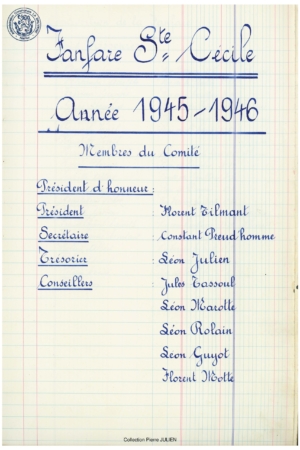 Fanfare Ste Cécile
Année 1945-1946
Membres du Comité
Président d'honneur :
Président : Florent Tilmant
Secrétaire : Constant Preud'homme
Tresorier : Léon Julien
Conseillers : Jules Tassoul
Léon Marotte
Léon Rolain
Leon Guyot
Florent Motte
Collection Pierre JULIEN